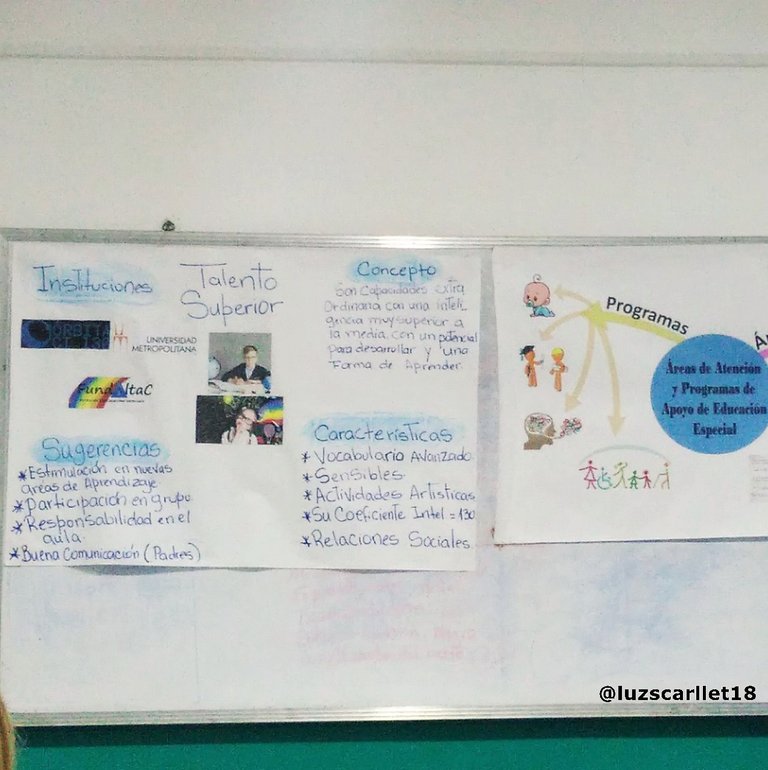 Instituciones
UNIVERSIDAD
METROPOLITANA
FundAltaC
Sugerencias
*Estimulación en nuevas
áreas de Aprendizaje
*Participación en grupo
*Responsabilidad en el
aula.
*Buena Comunicación (Padres)
Talento
Superior
Concepto
Son Capacidades extra
Ordinaria con una inteli-
gencia muy superior a
la media, con un potencial
para desarrollar y una
Forma de Aprender
Características
*Vocabulario Avanzado
*Sensibles
*Actividades Artísticas
*Su Coeficiente Intel = 130
*Relaciones Sociales
Programas
Áreas de Atención
y Programas de
Apoyo de Educación
Especial
@luzscarllet18